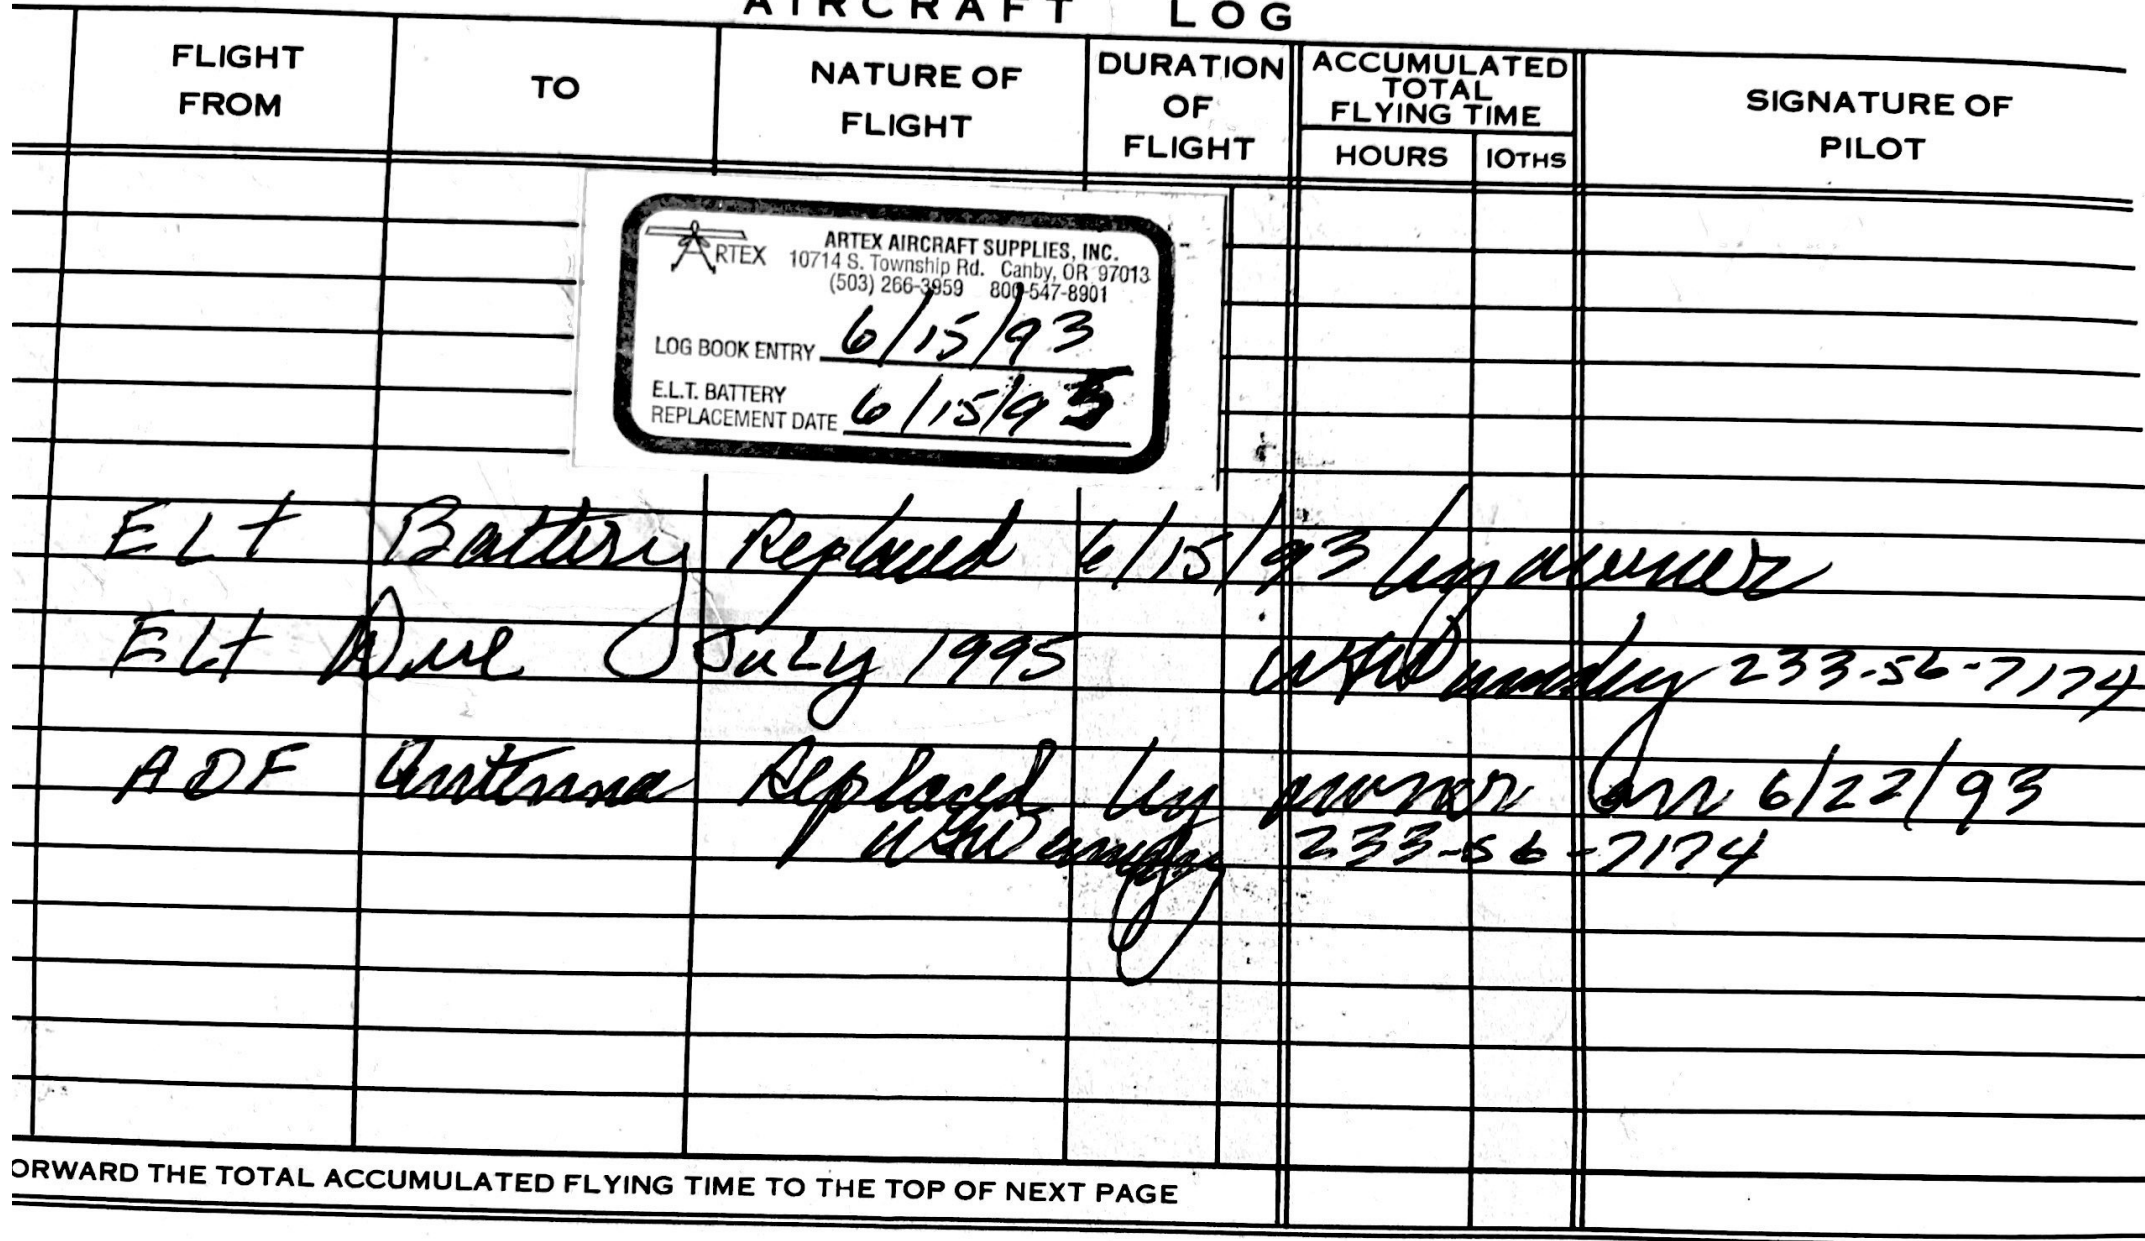 AIRCRAFT LOG
FLIGHT FROM TO NATURE OF FLIGHT DURATION OF FLIGHT ACCUMULATED TOTAL FLYING TIME HOURS 10THS SIGNATURE OF PILOT
ARTEX
ARTEX AIRCRAFT SUPPLIES, INC.
10714 S. Township Rd. Canby, OR 97013
(503) 266-3959 800-547-8901
LOG BOOK ENTRY 6/15/93
E.L.T. BATTERY
REPLACEMENT DATE 6/15/95
ELt Battery Replaced 6/15/93 by owner
ELt Due July 1995 233-56-7174
ADF Antenna Replaced by owner on 6/22/93
233-56-7174
ORWARD THE TOTAL ACCUMULATED FLYING TIME TO THE TOP OF NEXT PAGE